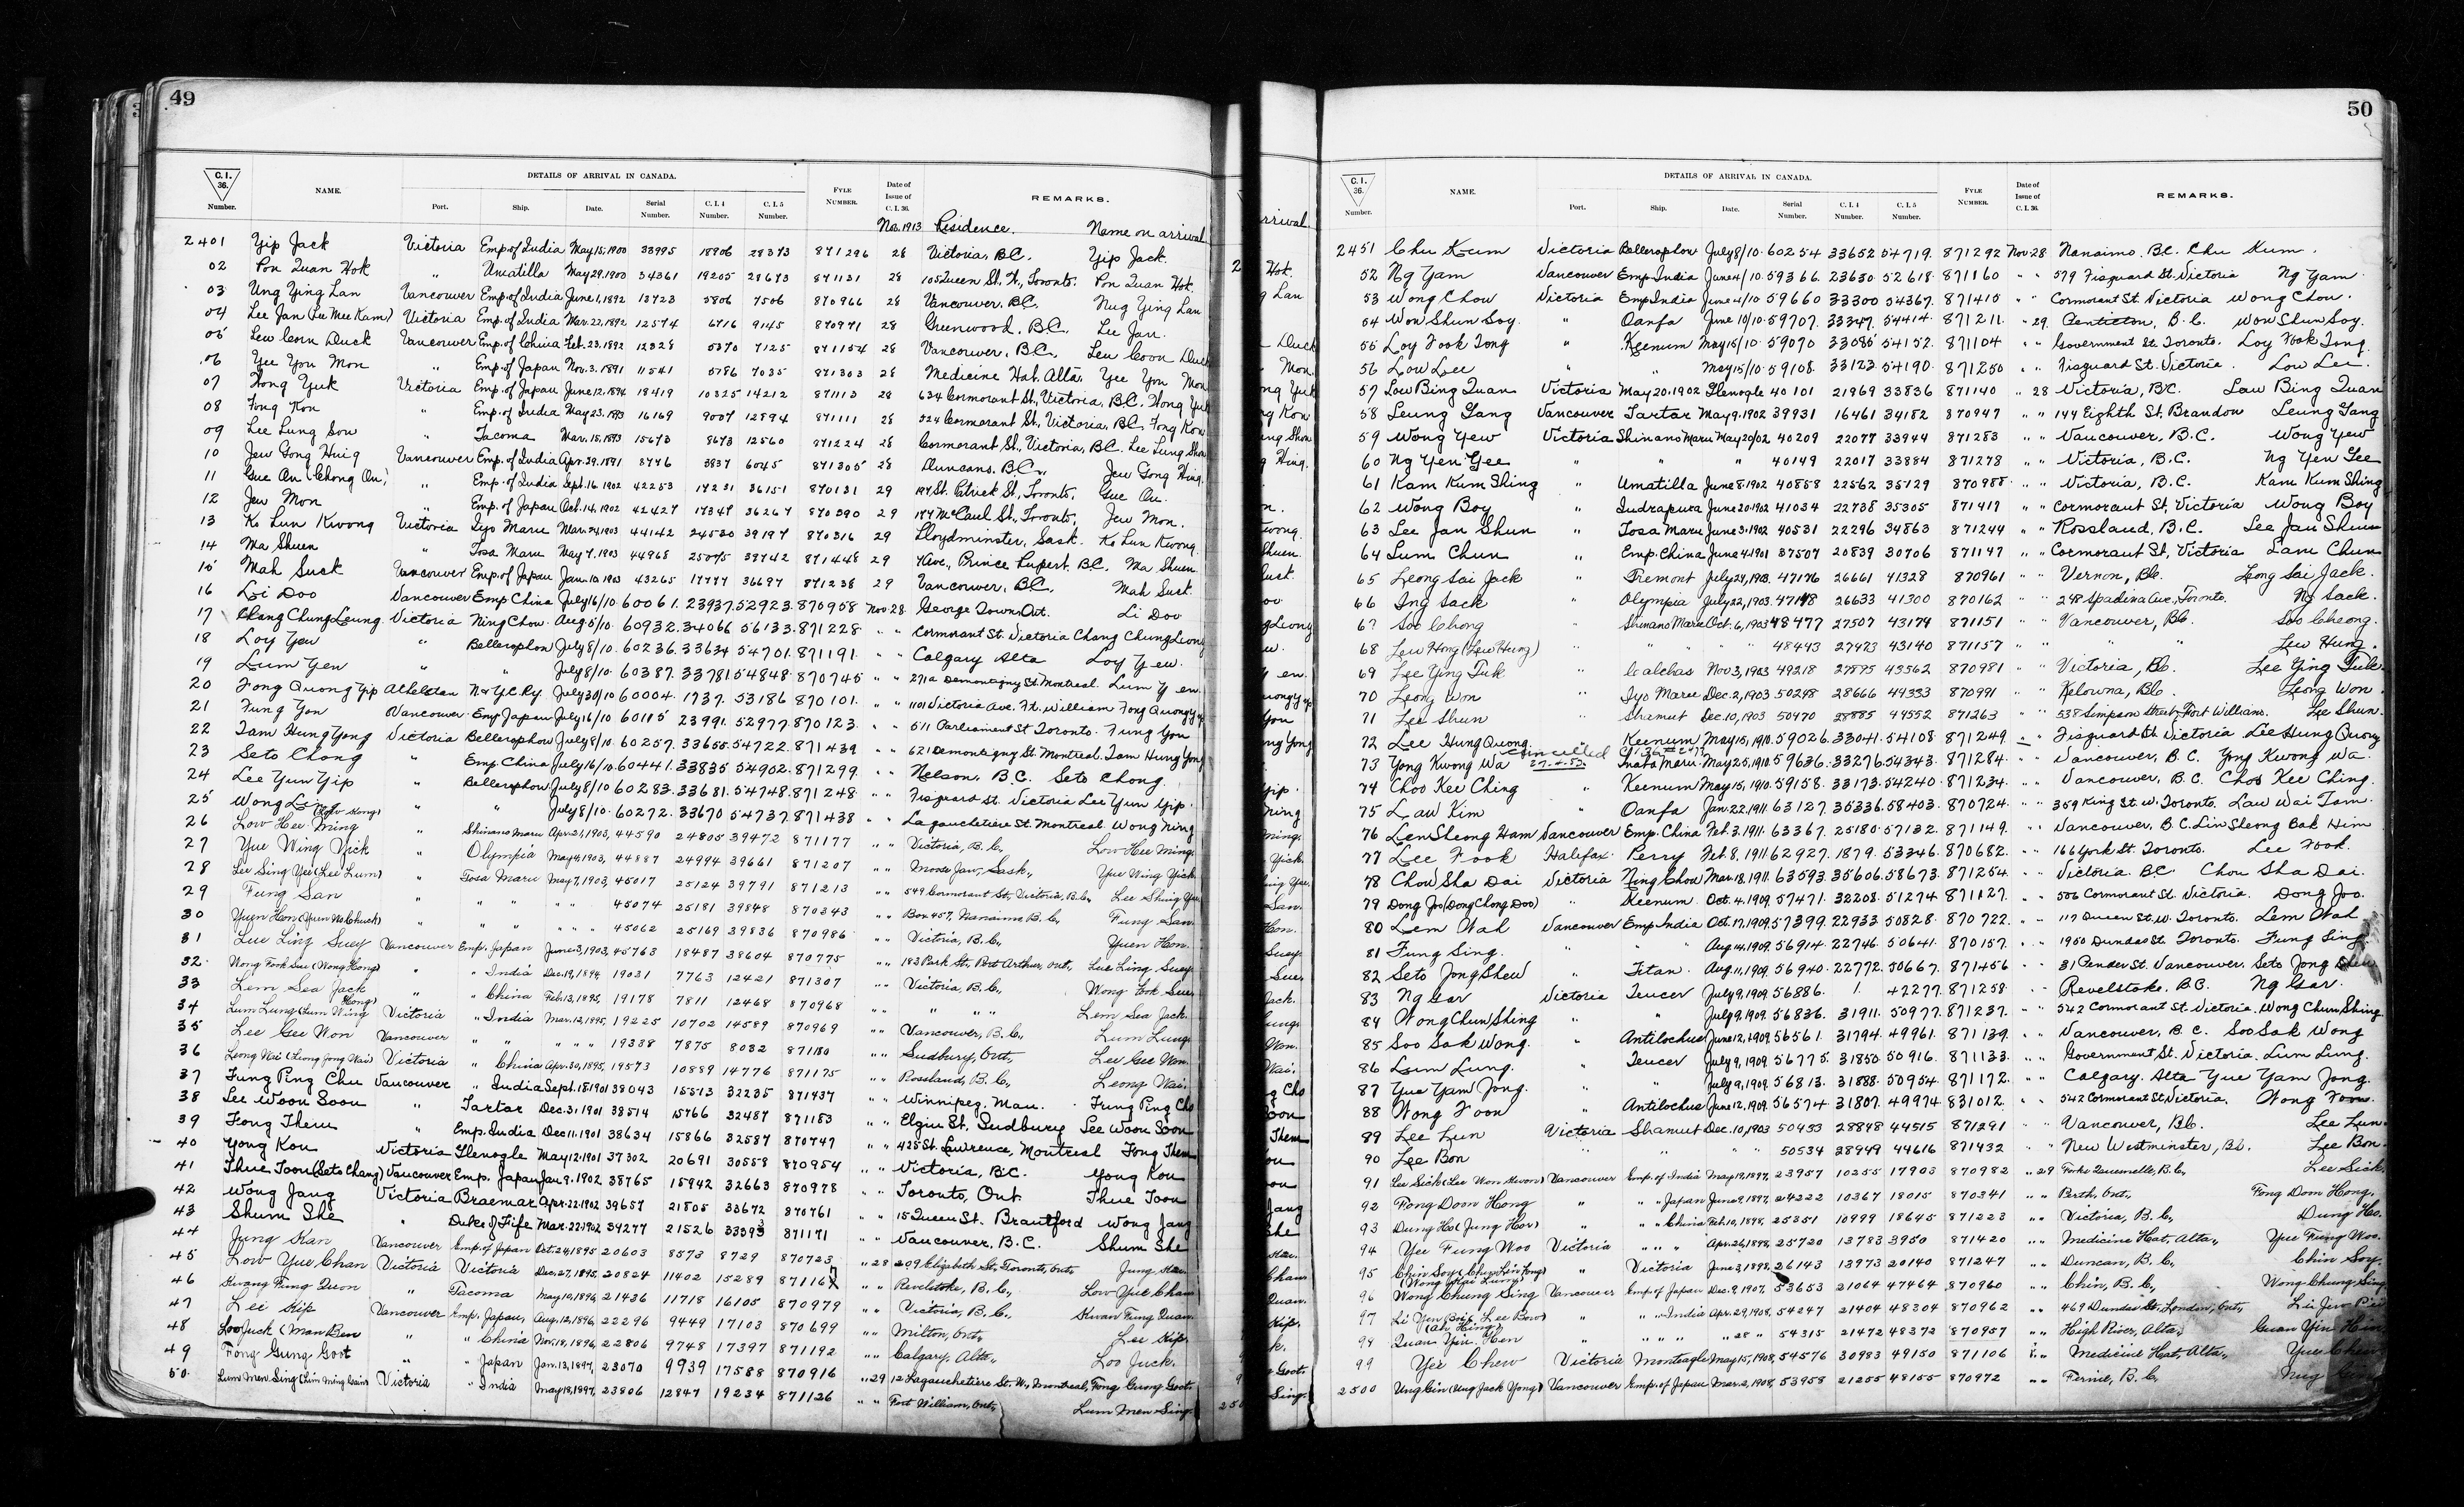 49
C. I. 36. Number.
NAME.
DETAILS OF ARRIVAL IN CANADA.
Port. Ship. Date. Serial Number. C. I. 4 Number. C. I. 5 Number.
FYLE NUMBER.
Date of Issue of C. I. 36.
REMARKS.
Nov. 1913 Residence. Name on arrival
2401 Yip Jack Victoria Emp. of India May 15, 1900 33995 18906 28373 871296 28 Victoria, B.C. Yip Jack.
02 Pon Quan Hok " Umatilla May 29, 1900 34361 19205 28673 871131 28 105 Queen St. W, Toronto. Pon Quan Hok.
03 Ung Ying Lan Vancouver Emp. of India June 1, 1892 13723 5806 7506 870966 28 Vancouver, B.C. Nug Ying Lan
04 Lee Jan (Lee Mee Kam) Victoria Emp. of India Mar. 22, 1892 12574 6716 9145 870971 28 Greenwood, B.C. Lee Jan.
05 Lew Coon Duck Vancouver Emp. of China Feb. 23, 1892 12328 5370 7125 871154 28 Vancouver, B.C. Lew Coon Duck
06 Yee You Mon " Emp. of Japan Nov. 3, 1891 11541 5786 7035 871303 28 Medicine Hat, Alta. Yee You Mon
07 Wong Yuk Victoria Emp. of Japan June 12, 1894 18419 10325 14212 871113 28 634 Cormorant St., Victoria, B.C. Wong Yuk
08 Fong Kon " Emp. of India May 23, 1893 16169 9007 12894 871111 28 524 Cormorant St., Victoria, B.C. Fong Kon
09 Lee Lung Sou " Tacoma Mar. 15, 1893 15673 8673 12560 871224 28 Cormorant St., Victoria, B.C. Lee Lung Shou
10 Jew Gong Hing Vancouver Emp. of India Apr. 29, 1891 8776 3937 6045 871305 28 Duncans, B.C. Jew Gong Hing.
11 Gue On (Chong On) " Emp. of India Sept. 16, 1902 42253 17231 36151 870131 29 194 St. Patrick St., Toronto. Gue On.
12 Jew Mon " Emp. of Japan Oct. 14, 1902 42427 17347 36267 870390 29 184 McCaul St., Toronto. Jew Mon.
13 Ko Lun Kwong Victoria Iyo Maru Mar. 24, 1903 44142 24530 39197 870316 29 Lloydminster, Sask. Ko Lun Kwong
14 Ma Shuen " Tosa Maru May 7, 1903 44968 25075 39742 871448 29 Prince Rupert. B.C. Ma Shuen.
15 Mah Suck Vancouver Emp. of Japan Jan. 10, 1903 43265 17777 36697 871238 29 Vancouver, B.C. Mah Suck.
16 Li Doo Vancouver Emp China July 16/10 60061. 23937. 52923. 870958 Nov. 28. George Town Ont. Li Doo
17 Chang Chung Leung Victoria Ning Chow Aug. 5/10 60932. 34066 56133. 871228 " " Cormorant St. Victoria Chang Chung Leong
18 Loy Yew " Bellerophon July 8/10. 60236. 33634 54701. 871191. " " Calgary Alta Loy Yew.
19 Lum Yen " " July 8/10. 60387. 33781 54848. 870745 " " 271a Demontigny St. Montreal. Lum Yen.
20 Fong Quong Yip Athelstan N & Y.C. Ry. July 30/10 60004. 1737. 53186 870101. " " 1101 Victoria Ave. Ft. William Fong Quong Yip
21 Fung Yon Vancouver Emp Japan July 16/10 60115 23991. 52977. 870123. " " 511 Parliament St Toronto. Fung Yon
22 Tam Hung Yong Victoria Bellerophon July 8/10. 60257. 33655. 54722. 871439 " " 621 Demontigny St. Montreal. Tam Hung Yong
23 Seto Chong " Emp. China July 16/10 60441. 33835 54902. 871299. " " Nelson, B.C. Seto Chong.
24 Lee Yun Yip " Bellerophon July 8/10 60283. 33681. 54748. 871248. " " Fisguard St. Victoria Lee Yun Yip.
25 Wong Ling " " July 8/10. 60272. 33670 54737. 871438 " " Lagauchetiere St. Montreal. Wong Ning
26 Low Hee Ming (Low Hong) " Shinano Maru Apr. 21, 1903, 44590 24805 39472 871177 " " Victoria, B.C. Low Hee Ming.
27 Yue Wing Yick " Olympia May 4, 1903, 44887 24994 39661 871207 " " Moose Jaw, Sask., Yue Wing Yick.
28 Lee Sing Yee (Lee Lum) " Tosa Maru May 7, 1903, 45017 25124 39791 871213 " " 549 Cormorant St, Victoria, B.C., Lee Shing Yue.
29 Fung San " " " " " " 45074 25181 39848 870343 " " Box 457, Nanaimo B.C, Fung San.
30 Yuen Hon (Yuen Na Chuck) " " " " " " 45062 25169 39836 870986 " " Victoria, B.C., Yuen Hon.
31 Lue Ling Suey Vancouver Emp. Japan June 3, 1903, 45763 18487 38604 870775 " " 183 Park St., Port Arthur, Ont., Lue Ling Suey.
32 Wong Fook Sue (Wong Hong) " " India Dec. 19, 1894, 19031 7763 12421 871307 " " Victoria, B.C., Wong Fook Sue.
33 Lem Sea Jack " " China Feb. 13, 1895, 19178 7811 12468 870968 " " " " " Lem Sea Jack.
34 Lum Lung (Lum Wing Hong) Victoria " India Mar. 12, 1895, 19225 10702 14589 870969 " " Vancouver, B.C., Lum Lung.
35 Lee Gee Won Vancouver " " " " " 19338 7875 8032 871180 " " Sudbury, Ont., Lee Gee Won.
36 Leong Wai (Leong Jong Wai) Victoria " China Apr. 30, 1895, 19573 10889 14776 871175 " " Rossland, B.C., Leong Wai.
37 Fung Ping Chu Vancouver " India Sept. 18, 1901 38043 15513 32235 871437 " " Winnipeg, Man. Fung Ping Cho
38 Lee Woon Soon " Tartar Dec. 3, 1901 38514 15766 32487 871183 " " Elgin St, Sudbury Lee Woon Soon
39 Fong Them " Emp. India Dec. 11, 1901 38634 15866 32587 870747 " " 425 St. Lawrence, Montreal Fong Them
40 Yong Kou Victoria Glenogle May 12, 1901 37302 20691 30558 870954 " " Victoria, B.C. Yong Kou
41 Thue Toon (Seto Chang) Vancouver Emp. Japan Jan 9, 1902 38765 15942 32663 870978 " " Toronto, Ont. Thue Toon
42 Wong Jang Victoria Braemar Apr. 22, 1902 39657 21805 33672 870761 " " 15 Queen St. Brantford Wong Jang
43 Shum She " Duke of Fife Mar. 22, 1902 34277 21526 33393 871171 " " Vancouver. B.C. Shum She
44 Jung Kan Vancouver Emp. of Japan Oct. 24, 1895 20603 8573 8729 870723 " 28 209 Elizabeth St., Toronto, Ont., Jung Kan.
45 Low Yue Chan Victoria Victoria Dec. 27, 1895, 20824 11402 15289 871167 " " Revelstoke, B.C., Low Yue Chan
46 Kwang Fung Quon " Tacoma May 10, 1896, 21436 11718 16105 870979 " " Victoria, B.C., Kwan Fung Quan.
47 Lee Kip Vancouver Emp. Japan, Aug. 12, 1896, 22296 9449 17103 870699 " " Milton, Ont., Lee Kip.
48 Loo Juck (Man Ben " " China Nov. 18, 1896, 22806 9748 17397 871192 " " Calgary, Alta., Loo Juck.
49 Fong Gung Goot " " Japan Jan. 13, 1897, 23070 9939 17588 870916 " 29 12 Lagauchetiere St. W., Montreal, Fong Gung Goot.
50. Lum Men Sing (Lim Ming Sain) Victoria " India May 18, 1897, 23806 12847 19234 871126 " " Fort William, Ont., Lum Men Sing.
50
C. I. 36. Number.
NAME.
DETAILS OF ARRIVAL IN CANADA.
Port. Ship. Date. Serial Number. C. I. 4 Number. C. I. 5 Number.
FYLE NUMBER.
Date of Issue of C. I. 36.
REMARKS.
2451 Chu Kum Victoria Bellerophon July 8/10. 60254 33652 54719. 871292 Nov 28 Nanaimo. B.C. Chu Kum.
52 Ng Yam Vancouver Emp India June 4/10 59366. 23630 52618. 871160 " " 579 Fisguard St. Victoria Ng Yam.
53 Wong Chou Victoria Emp India June 4/10 59660 33300 54367. 871415 " " Cormorant St. Victoria Wong Chou.
54 Won Shun Soy. " Oanfa June 10/10. 59707. 33347. 54414. 871211. " 29. Penticton, B.C. Won Shun Soy.
55 Loy Fook Tong " Keenum May 15/10. 59070 33085 54152. 871104 " " Government St. Toronto. Loy Fook Tong.
56 Low Lee " " May 15/10 59108. 33123 54190. 871250 " " Fisguard St. Victoria. Low Lee.
57 Low Bing Quan Victoria May 20. 1902 Glenogle 40101 21969 33836 871140 " 28 Victoria, B.C. Law Bing Quan
58 Leung Gang Vancouver Tartar May 9, 1902 39931 16461 34182 870947 " " 144 Eighth St, Brandon Leung Gang
59 Wong Yew Victoria Shinano Maru May 20/02 40209 22077 33944 871283 " " Vancouver, B.C. Wong Yew
60 Ng Yen Gee " " " 40149 22017 33884 871278 " " Victoria, B.C. Ng Yen Gee
61 Kam Kum Shing " Umatilla June 8, 1902 40858 22562 35129 870988 " " Victoria, B.C. Kam Kum Shing
62 Wong Boy " Indrapura June 20, 1902 41034 22738 35305 871419 " " Cormorant St, Victoria Wong Boy
63 Lee Jan Shun " Tosa Maru June 3, 1902 40531 22296 34863 871244 " " Rossland, B.C. Lee Jan Shun
64 Lum Chun " Emp. China June 4, 1901 37507 20839 30706 871147 " " Cormorant St, Victoria Lam Chun
65 Leong Sai Jack " Tremont July 24, 1903. 47176 26661 41328 870961 " " Vernon, B.C. Leong Sai Jack.
66 Ing Sack " Olympia July 22, 1903. 47148 26633 41300 870162 " " 248 Spadina Ave., Toronto. Ng Sack.
67 Soo Chong " Shinano Maru Oct. 6, 1903 48477 27507 43174 871151 " " Vancouver, B.C. Soo Cheong.
68 Lew Hong (Lew Hung) " " " " 48443 27473 43140 871157 " " " " Lew Hung.
69 Lee Ying Tuk " Calchas Nov 3, 1903 49218 27875 43562 870981 " " Victoria, B.C. Lee Ying Tuk.
70 Leong Won " Iyo Maru Dec. 2, 1903 50248 28666 44333 870991 " " Kelowna, B.C. Leong Won.
71 Lee Shun " Shawmut Dec. 10, 1903 50470 28885 44552 871263 " " 538 Simpson Street, Fort William. Lee Shun.
72 Lee Hung Quong " Keenum May 15, 1910. 59026. 33041. 54108. 871249. " " Fisguard St. Victoria Lee Hung Quong
Cancelled
27.4.53
73 Yong Kwong Wa Inaba Maru May 25, 1910. 59636. 33276. 54343. 871284. " " Vancouver, B.C. Yong Kwong Wa.
74 Choo Kee Ching " Keenum May 15, 1910. 59158. 33173. 54240. 871234. " " Vancouver, B.C. Choo Kee Ching.
75 Law Kim " Oanfa Jan. 22, 1911. 63127. 35336. 58403. 870724. " " 359 King St. W. Toronto. Law Wai Tam.
76 Len Sheong Ham Vancouver Emp. China Feb. 3, 1911. 63367. 25180. 57132. 871149. " " Vancouver, B.C. Lin Sheong Bak Him
77 Lee Fook Halifax. Perry Feb. 8, 1911 62927. 1879. 53346. 870682. " " 166 York St. Toronto. Lee Fook.
78 Chow Sha Dai Victoria Ning Chow Mar. 18, 1911. 63593. 35606. 58673. 871254. " " Victoria BC Chou Sha Dai.
79 Dong Joo (Dong Chong Doo) " Keenum. Oct. 4, 1909. 57471. 32208. 51274 871127. " " 506 Cormorant St. Victoria. Dong Joo.
80 Lem Wah Vancouver Emp India Oct. 17, 1909. 57399. 22933 50828. 870722. " " 117 Queen St. W. Toronto. Lem Wah
81 Fung Sing. " " Aug. 14, 1909. 56914. 22746. 50641. 870157. " " 1950 Dundas St. Toronto. Fung Sing.
82 Seto Jong Shew " Titan. Aug. 11, 1909. 56940. 22772. 50667. 871456 " " 31 Pender St. Vancouver. Seto Jong Shew
83 Ng Gar Victoria Teucer July 9, 1909. 56886. 1. 42277. 871258. " " Revelstoke, B.C. Ng Gar.
84 Wong Chun Shing " " July 9, 1909. 56836. 31911. 50977. 871237. " " 542 Cormorant St. Victoria. Wong Chun Shing.
85 Soo Sak Wong. " Antilochus June 12, 1909. 56561. 31794. 49961. 871139. " " Vancouver, B.C. Soo Sak Wong
86 Lum Lung. " Teucer July 9, 1909. 56775. 31850. 50916. 871133. " " Government St. Victoria. Lum Lung.
87 Yue Yam Jong. " " July 9, 1909. 56813. 31888. 50954. 871172. " " Calgary. Alta Yue Yam Jong.
88 Wong Foon " Antilochus June 12, 1909. 56574. 31807. 49974. 831012. " " 542 Cormorant St. Victoria. Wong Foon.
89 Lee Lun Victoria Shawmut Dec. 10, 1903 50433 28848 44515 871291 " " Vancouver, B.C. Lee Lun.
90 Lee Bon " " " 50534 28949 44616 871432 " " New Westminster, B.C. Lee Bon.
91 Lee Sick (Lee Won Kwon) Vancouver Emp. of India May 19, 1897, 23957 10255 17903 870982 " 29 Forks Quesnelle, B.C., Lee Sick.
92 Fong Doon Hong " " " Japan June 9, 1897, 24222 10367 18015 870341 " " Perth, Ont., Fong Doon Hong.
93 Dung Ho (Jung Hor) " " " China Feb. 10, 1898, 25351 10999 18645 871223 " " Victoria, B.C., Dung Ho.
94 Yee Fung Woo Victoria " " " Apr. 26, 1898, 25720 13783 3950 871420 " " Medicine Hat, Alta., Yue Fung Woo.
95 Chin Soy (Chin Lin Fong) " Victoria June 3, 1898, 26143 13973 20140 871247 " " Duncan, B.C., Chin Soy.
96 Wong Chung Sing (Wong Kai Lung) Vancouver Emp. of Japan Dec. 9, 1907, 53653 21064 47464 870960 " " Chin, B.C., Wong Chung Sing
97 Li Yen Bow (Lee Bow) " " " India Apr. 29, 1908, 54247 21404 48304 870962 " " 469 Dundas St. London, Ont.,
98 Quan Yin Hen (Ah Hing) " " " " " 28 " 54315 21472 48372 870957 " " High River, Alta., Quan Yin Hin
99 Yee Chew Victoria Monteagle May 15, 1908, 54576 30983 49150 871106 " " Medicine Hat, Alta., Yue Chew
2500 Ung Gin (Ung Jack Yong) Vancouver Emp. of Japan Mar. 2, 1908, 53958 21255 48155 870972 " " Fernie, B.C. Nug